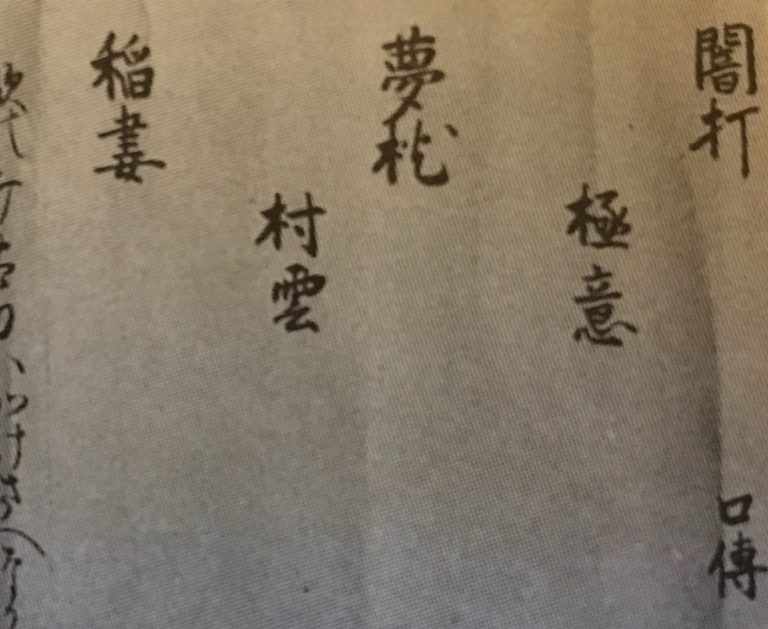 闇打
口傳
極意
夢枕
村雲
稲妻